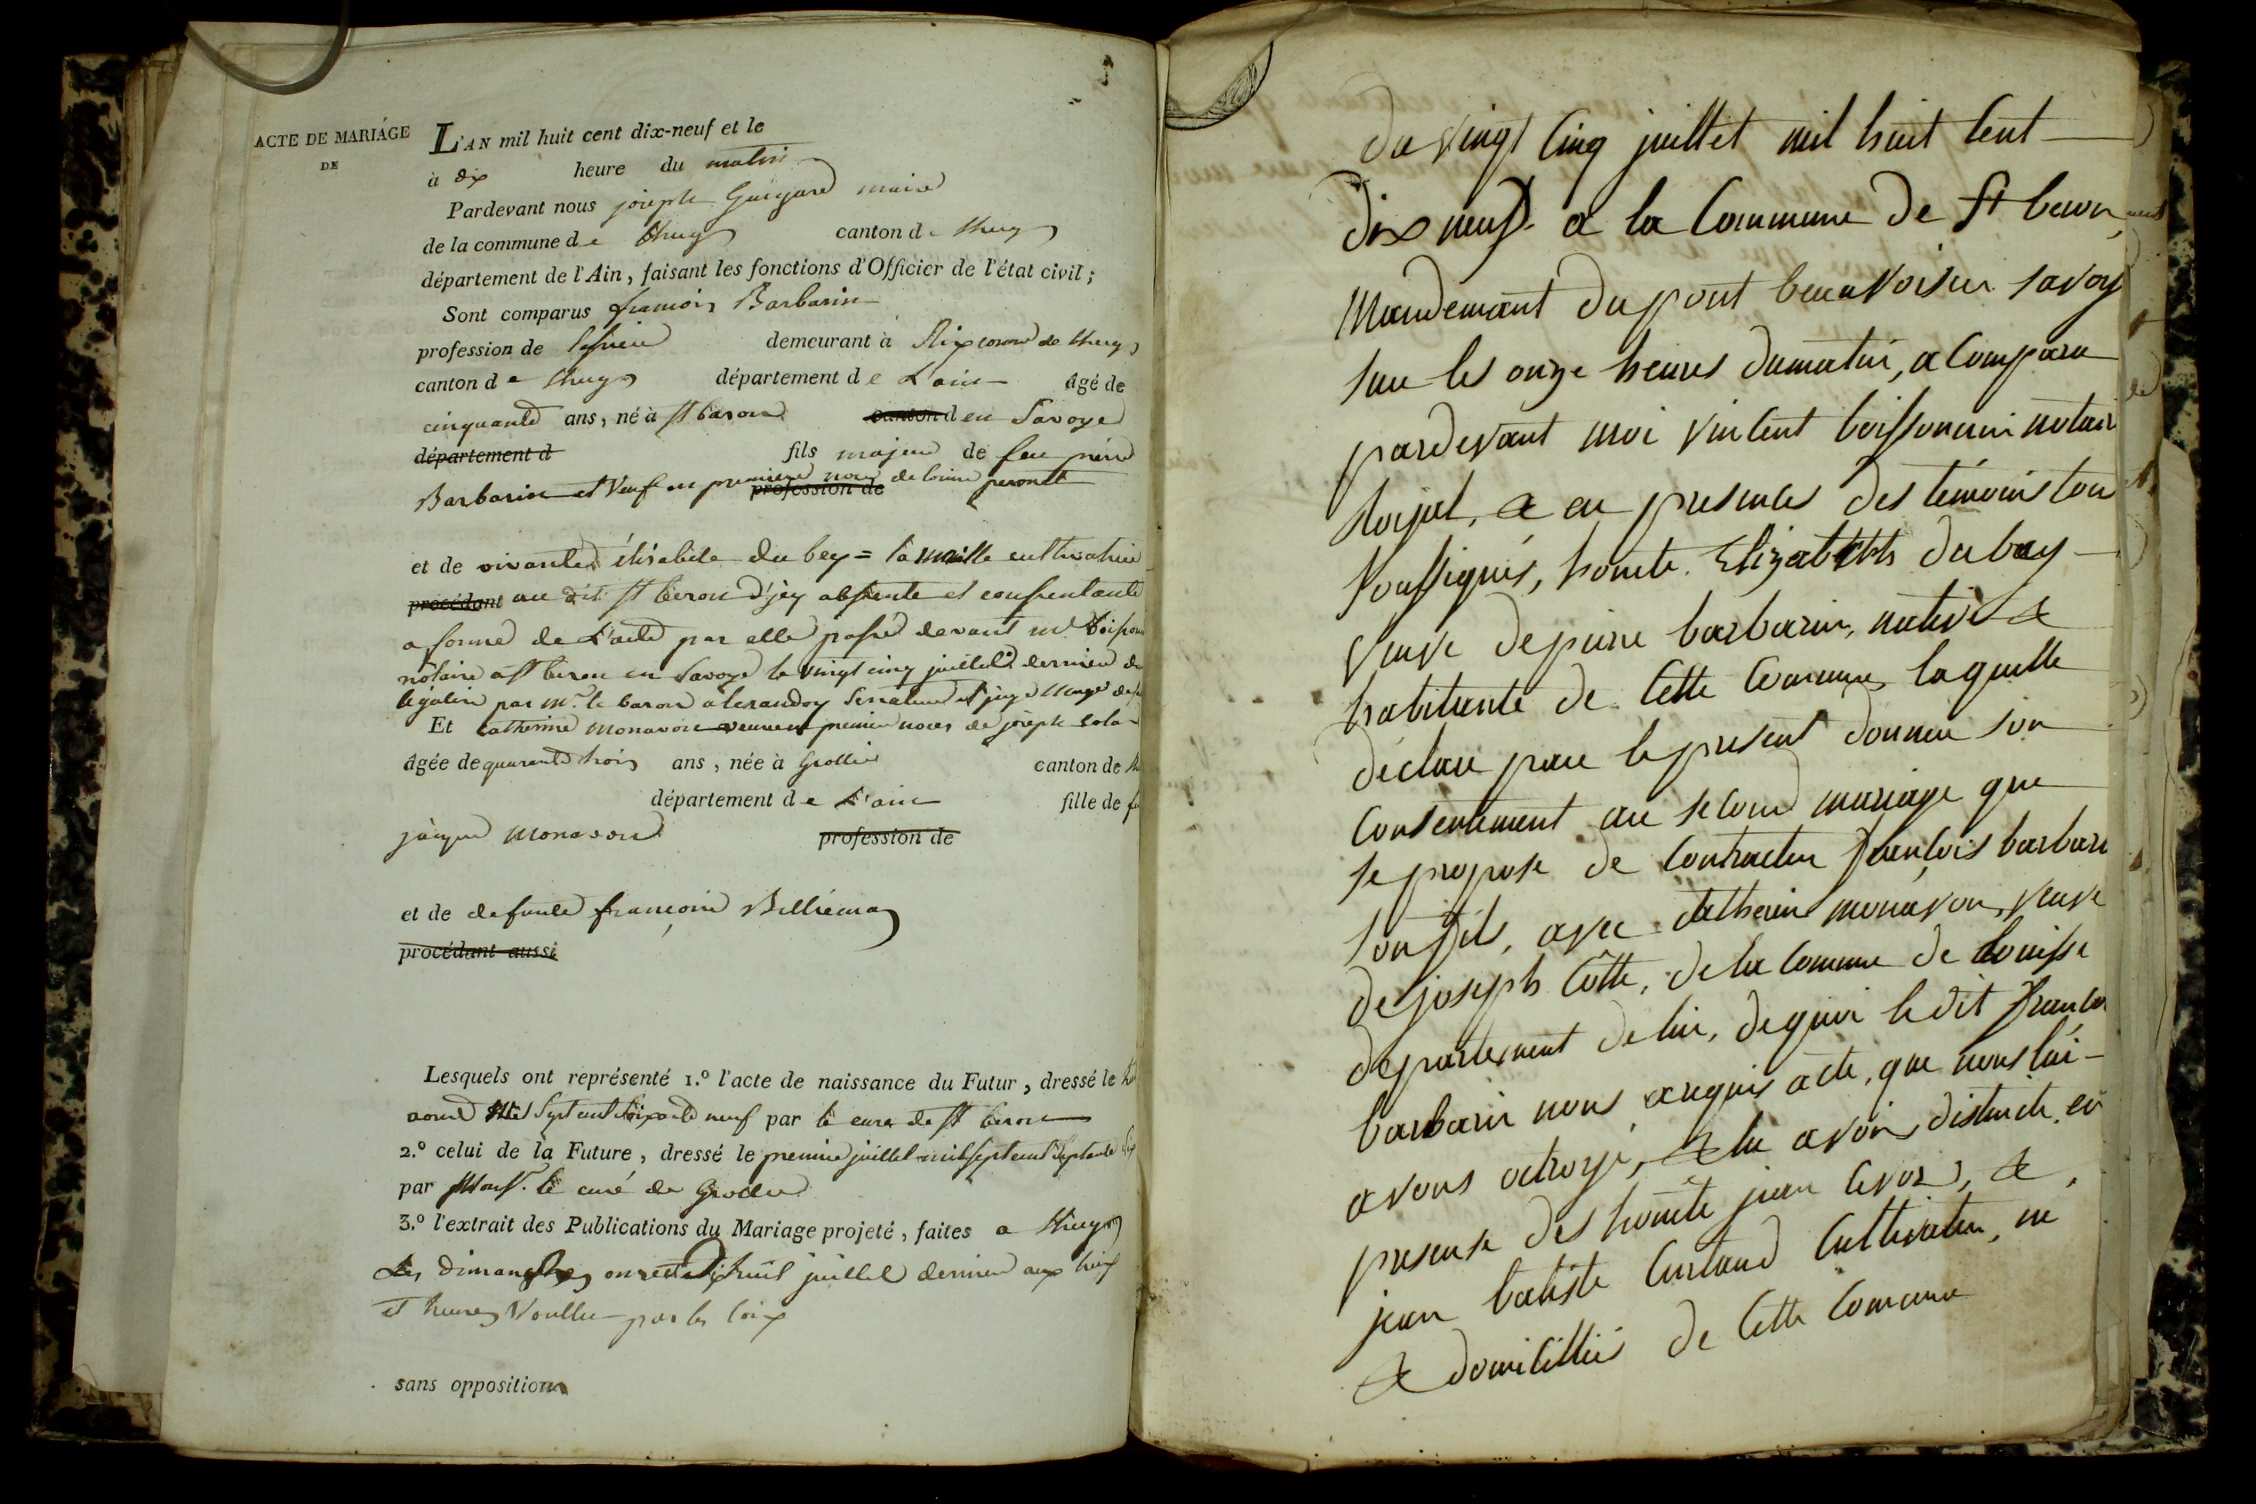 ACTE DE MARIAGE
DE
L'AN mil huit cent dix-neuf et le
à dix heure du matin
Pardevant nous joseph Guigard maire
de la commune de thuy canton de thuy
département de l'Ain, faisant les fonctions d'Officier de l'état civil ;
Sont comparus francois Barbarin
profession de demeurant à de thuy
canton de thuy département de L'ain âgé de
cinquante ans, né à st baron canton d en Savoye
département d fils majeur de feu pierre
Barbarin et Veuf en première profession de de peronet
et de vivante élisabete du bey = famille cultivatrice
procédant au dit st beron d'jcy absente et consentante
a forme de L'acte par elle passé devant mr boisson
nôtaire a st beron en Savoye le vingt cinq juillet dernier
légalisé par mr. le baron alexandry Senateur et juge mage
Et catherine monavon veuve en premier noces de joseph
âgée de quarante trois ans, née à Grollié canton de
département de L'ain fille de
jâcque monavon profession de
et de defunte françoise Billiéma
procédant aussi
Lesquels ont représenté 1.º l'acte de naissance du Futur, dressé le
aoust mil Sept cent soixante neuf par le curé de st beron
2.º celui de la Future, dressé le premier juillet mil sept cent septante
par Monsr. le curé de Grollié
3.º l'extrait des Publications du Mariage projeté, faites a thuy
Les dimanches onze et dixhuit juillet dernier aux lieux
et heures Voullu par les loix
sans opposition
du vingt Cinq juillet mil huit Cent
dix neuf a la Commune de St beron,
Mandemant du pont beauvoisin savoy
sur les onze heures dumatin, a Comparu
pardevant moi vincent boissonnin notair
Royal, & en presences des témoins
soussignés, honete Elizabeth dubay
veuve depierre barbarin, native &
habitante de Cette Commune laquelle
déclare par le présent donner son
Consentement au second mariage que
se propose de Contracter françois barbari
son fils, avec Catherine monavon, veuve
de joseph Côtte, de la Commune de Louisse
departement de lin, dequoi le dit francoi
barbarin nous a requis acte, que nous lui
avons octroyé, & lu avoir distincte en
presence des honete jean Cevoz, &
jean batiste Curtaud Cultivateur, né
& domicilliés de Cette Commune